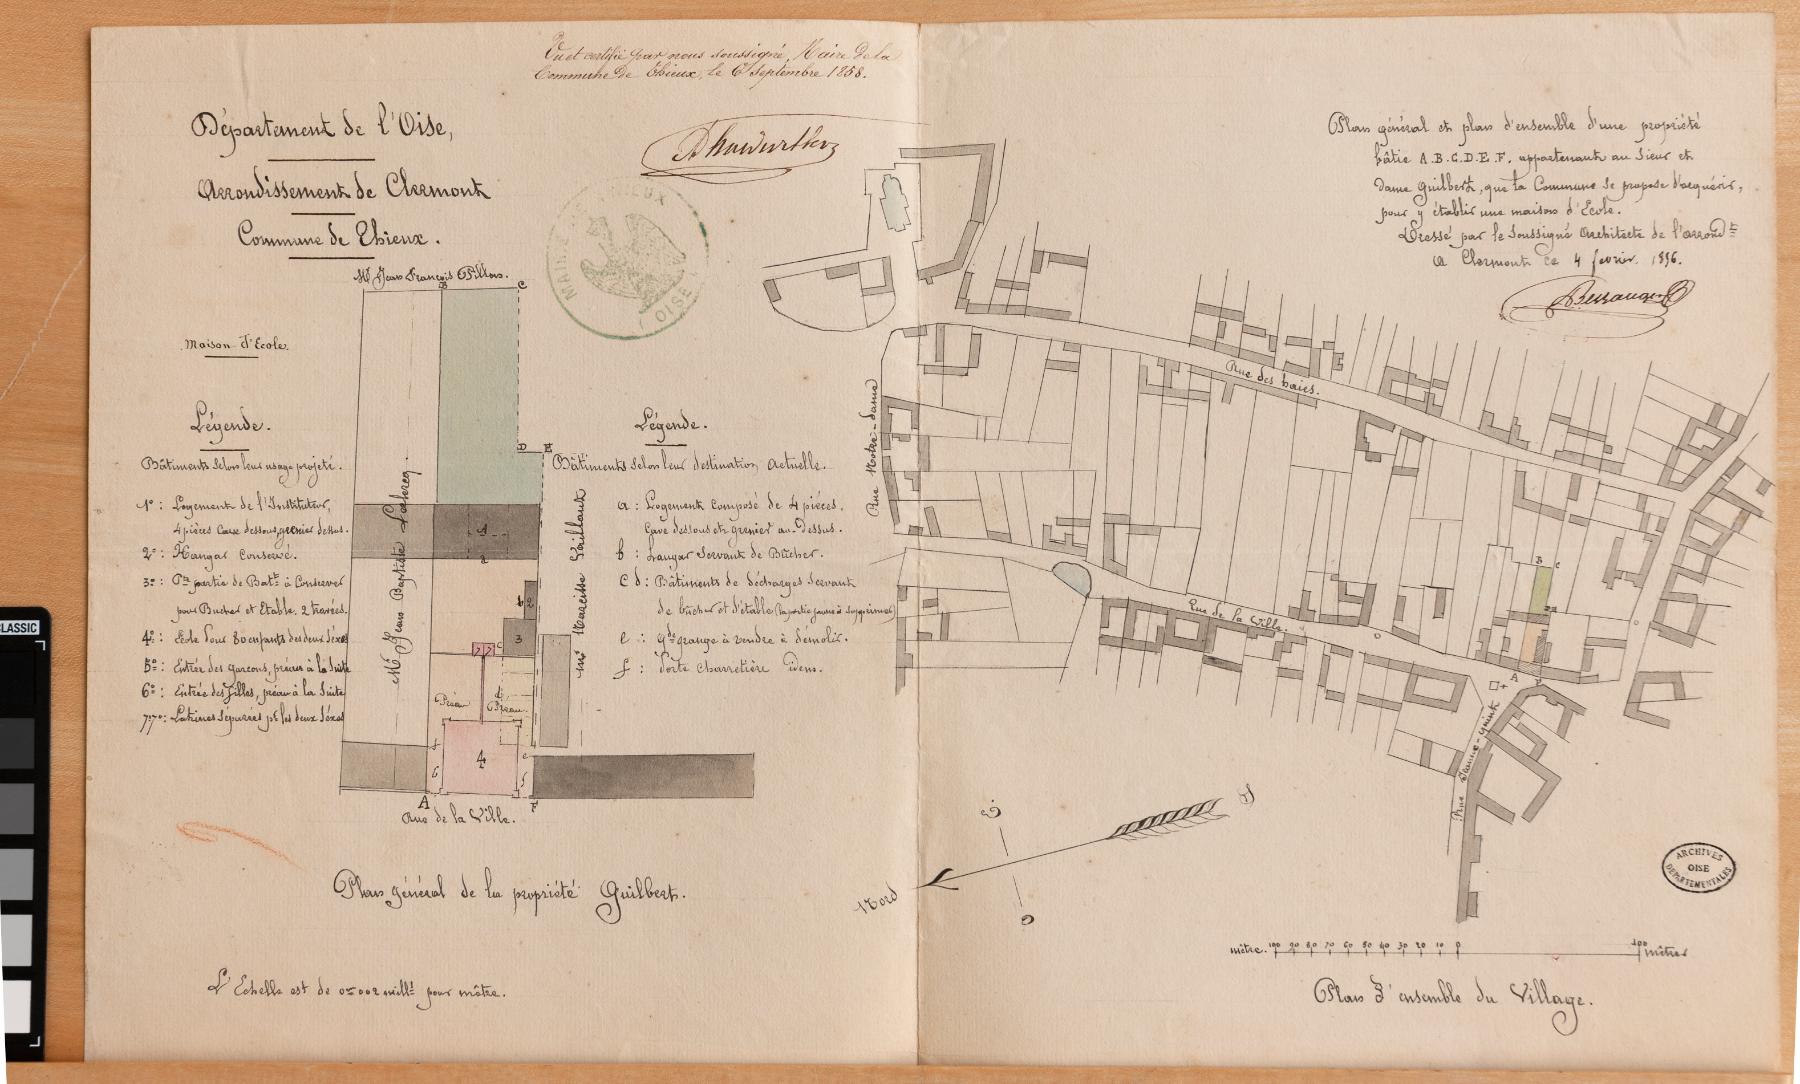 Vu et certifié par nous soussigné, Maire de la
Commune de Thieux, le 6 septembre 1858.
Département de l'Oise,
Arrondissement de Clermont
Commune de Thieux.
MAIRIE DE THIEUX
(OISE)
Maison d'Ecole.
Légende.
Bâtiments selon leur usage projeté.
1º : Logement de l'Instituteur,
4 pièces cave dessous, grenier dessus.
2º : Hangar conservé.
3º : Ptie partie de Batt. à Conserver
pour Bucher et Etable. 2 travées.
4º : Ecole pour 80 enfants des deux séxes
5º : Entrée des garçons, préau à la suite
6º : Entrée des filles, préau à la suite
7º 7º : Latrines séparées pr les deux séxes
Mr Jean François Pillon.
B
C
D
E
Mr Jean Baptiste
Mr Narcisse Vaillant
1
a
b
2
3
c
7
7
d
Préau
Préau
4
5
6
e
f
A
F
Rue de la Ville.
Légende.
Bâtiments selon leur destination actuelle.
a : Logement composé de 4 pièces.
Cave dessous et grenier au-dessus.
b : hangar servant de Bûcher.
c d : Bâtiments de décharges servant
de bûcher et d'étable (la partie jaune à supprimer)
e : gde grange à vendre à démolir.
f : Porte charretière idem.
Plan général de la propriété Guilbert.
L'Echelle est de 0m 002 mill. pour mètre.
Plan général et plan d'ensemble d'une propriété
bâtie A.B.C.D.E.F. appartenant au Sieur et
dame Guilbert, que la Commune se propose d'acquérir,
pour y établir une maison d'Ecole.
Dressé par le soussigné Architecte de l'arrondt
A Clermont ce 4 fevrier 1856.
Rue des haies.
Rue Notre-Dame
Rue de la Ville.
B
C
A
F
Nord
S
mètre. 100 90 80 70 60 50 40 30 20 10 0 100 mètres
Plan d'ensemble du Village.
ARCHIVES
OISE
DÉPARTEMENTALES
CLASSIC